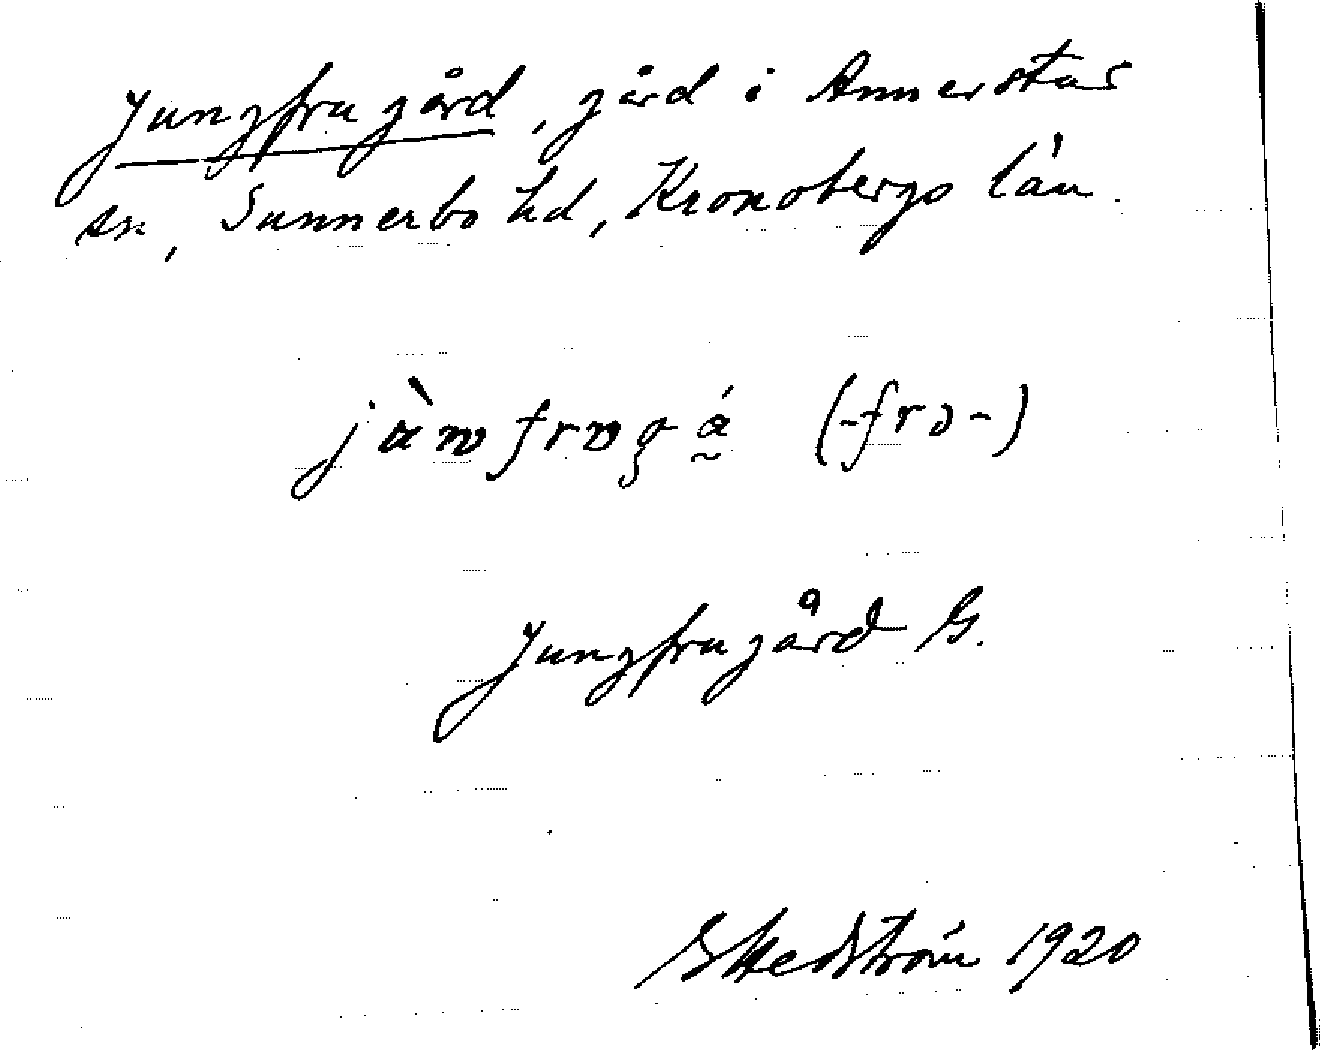 Jungfrugård, gård i Annerstad
sn, Sunnerbo hd, Kronobergs län.
(-frə-)
Jungfrugård G.
G Hedström 1920